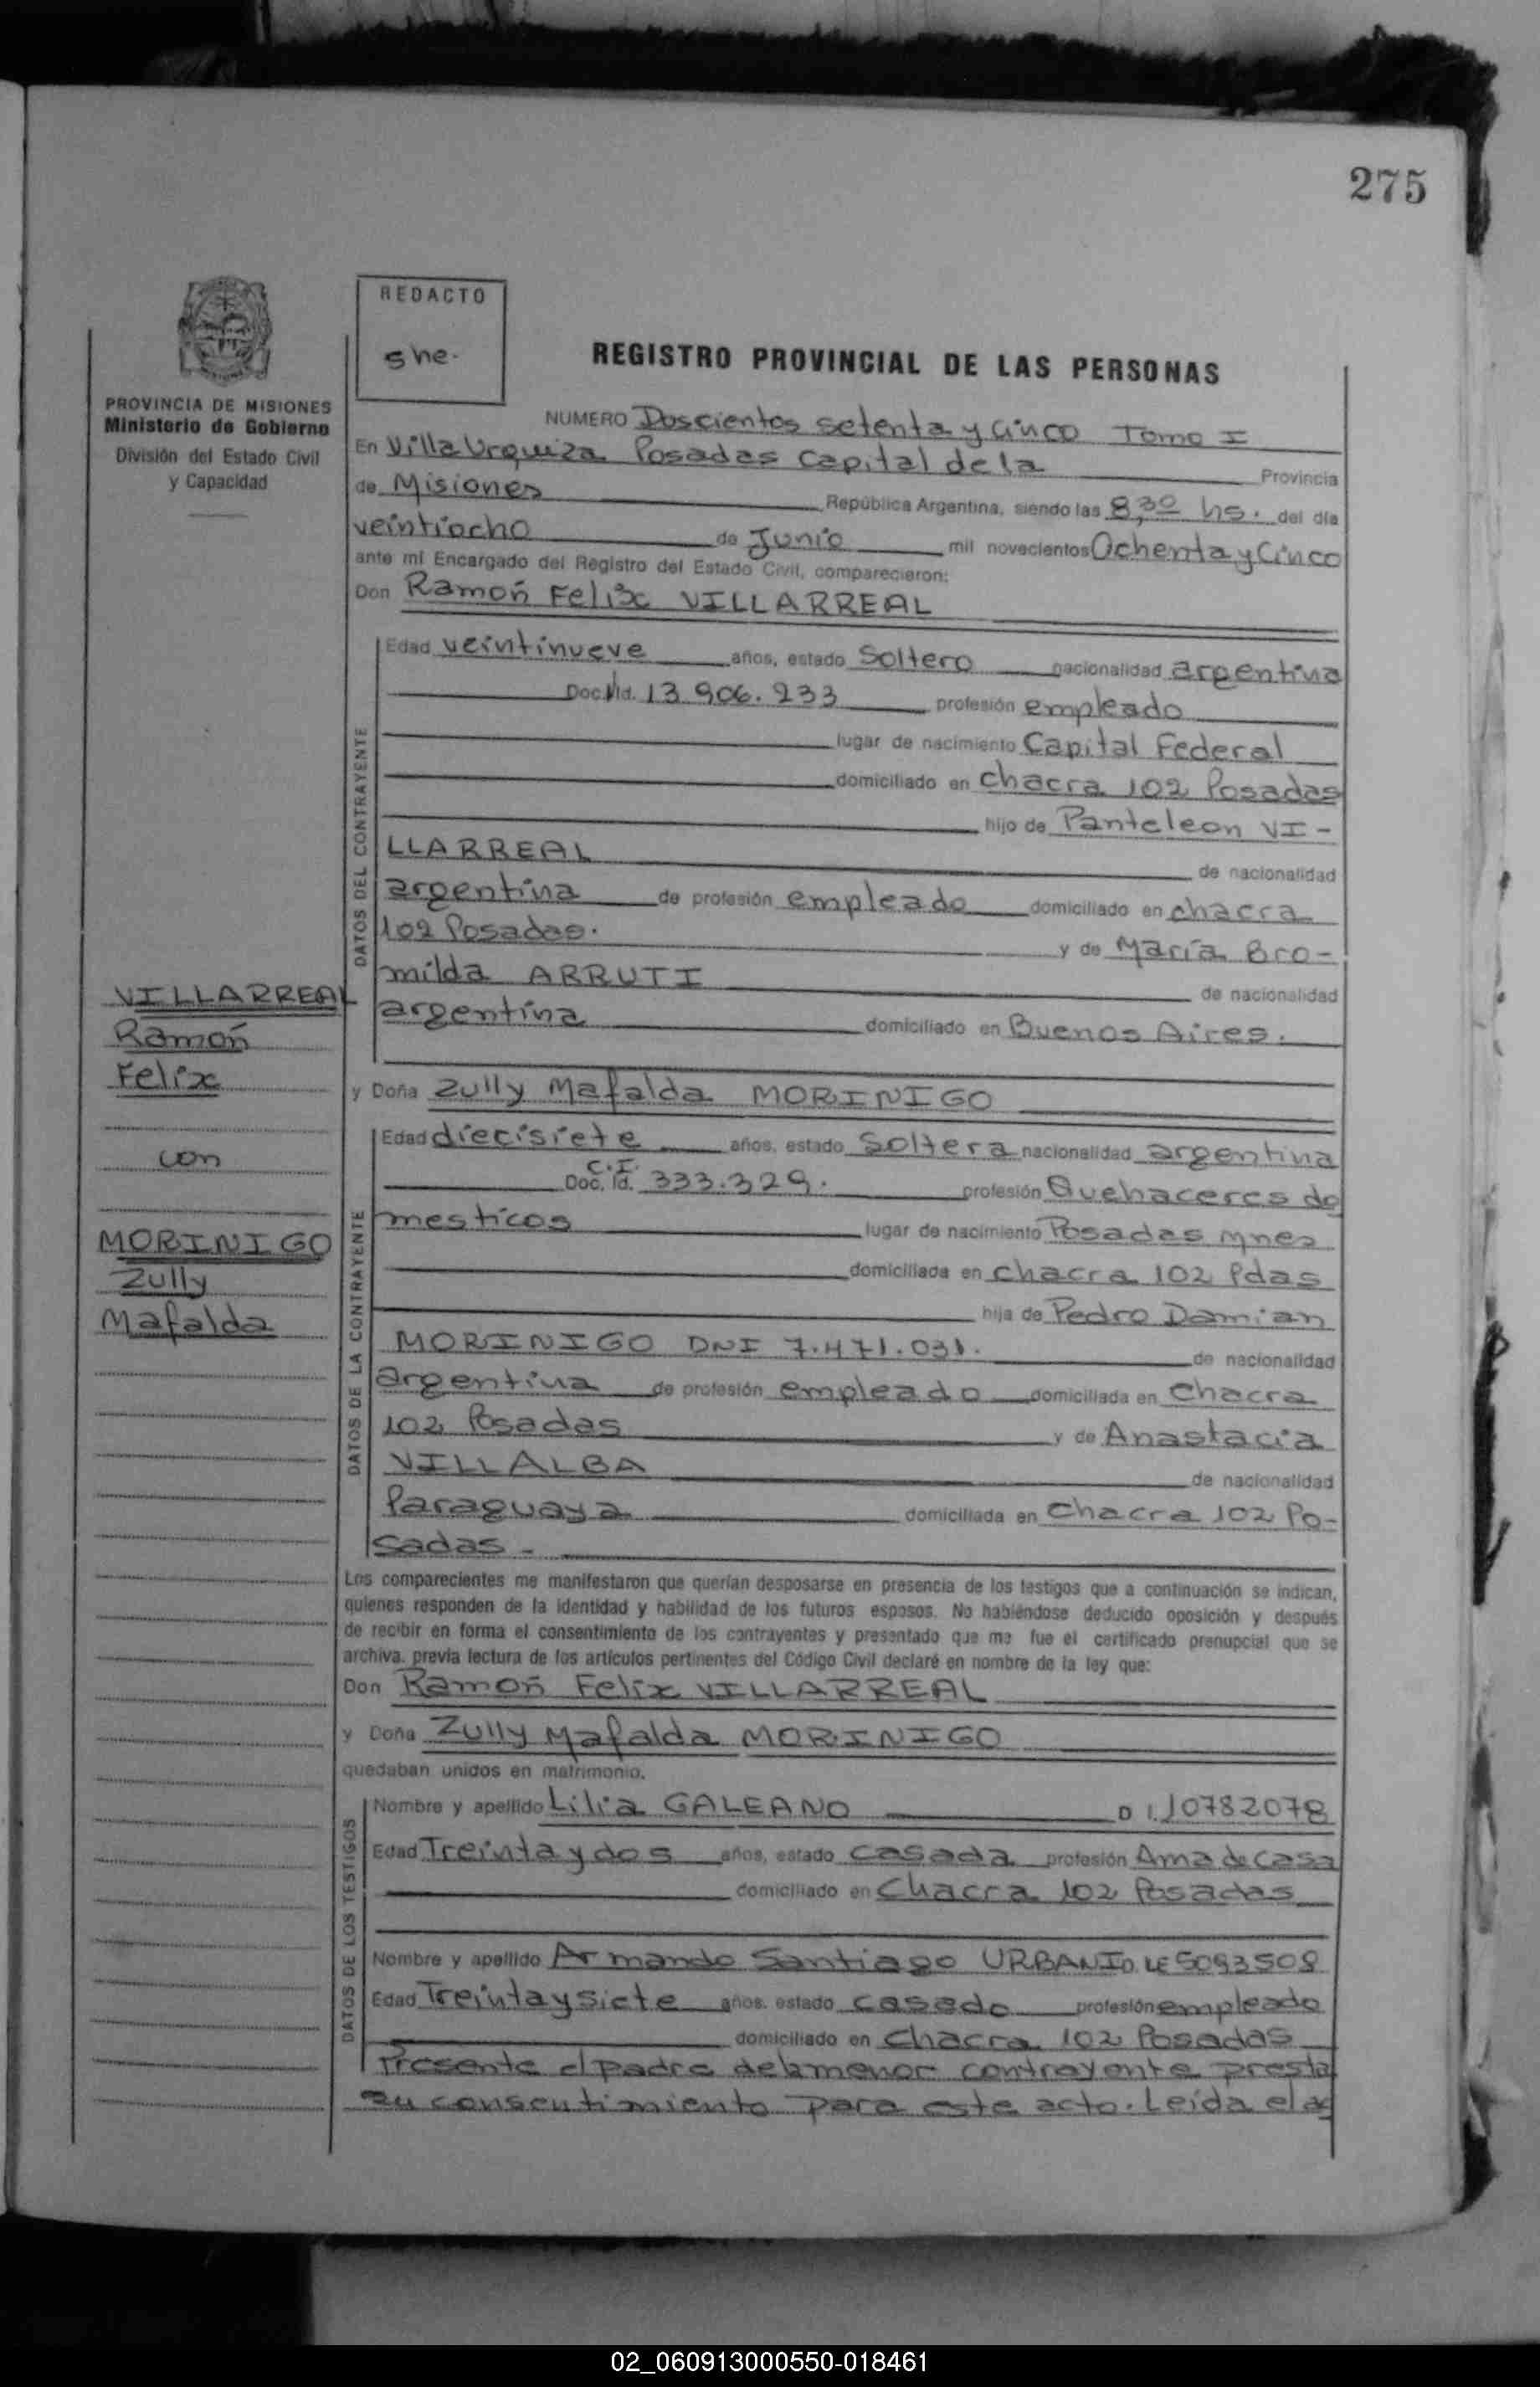 275
REDACTO
she.
REGISTRO PROVINCIAL DE LAS PERSONAS
PROVINCIA DE MISIONES
Ministerio de Gobierno
División del Estado Civil
y Capacidad
NUMERO Doscientos setenta y cinco Tomo I
En Villa Urquiza Posadas Capital de la Provincia
de Misiones República Argentina, siendo las 8,30 hs. del día
veintiocho de Junio mil novecientos Ochenta y Cinco
ante mí Encargado del Registro del Estado Civil, comparecieron:
Don Ramón Felix VILLARREAL
DATOS DEL CONTRAYENTE
Edad veintinueve años, estado Soltero nacionalidad argentina
Doc. Id. 13.906.233 profesión empleado
lugar de nacimiento Capital Federal
domiciliado en chacra 102 Posadas
hijo de Panteleon VI-
LLARREAL de nacionalidad
argentina de profesión empleado domiciliado en chacra
102 Posadas. y de María Bro-
milda ARRUTI de nacionalidad
argentina domiciliado en Buenos Aires.
VILLARREAL
Ramón
Felix
con
MORINIGO
Zully
Mafalda
y Doña Zully Mafalda MORINIGO
DATOS DE LA CONTRAYENTE
Edad diecisiete años, estado Soltera nacionalidad argentina
C.I.
Doc. Id. 333.329. profesión Quehaceres do
mesticos lugar de nacimiento Posadas Mnes
domiciliada en chacra 102 Pdas
hija de Pedro Damian
MORINIGO DNI 7.471.031. de nacionalidad
argentina de profesión empleado domiciliada en Chacra
102 Posadas y de Anastacia
VILLALBA de nacionalidad
Paraguaya domiciliada en Chacra 102 Po-
sadas-
Los comparecientes me manifestaron que querían desposarse en presencia de los testigos que a continuación se indican,
quienes responden de la identidad y habilidad de los futuros esposos. No habiéndose deducido oposición y después
de recibir en forma el consentimiento de los contrayentes y presentado que me fue el certificado prenupcial que se
archiva, previa lectura de los artículos pertinentes del Código Civil declaré en nombre de la ley que:
Don Ramón Felix VILLARREAL
y Doña Zully Mafalda MORINIGO
quedaban unidos en matrimonio.
DATOS DE LOS TESTIGOS
Nombre y apellido Lilia GALEANO D I. 10782078
Edad Treinta y dos años, estado casada profesión Ama de casa
domiciliado en Chacra 102 Posadas
Nombre y apellido Armando Santiago URBANI D. LE 5093508
Edad Treinta y siete años, estado casado profesión empleado
domiciliado en chacra 102 Posadas
Presente el padre de la menor contrayente presta
su consentimiento para este acto. Leída el ac
02_060913000550-018461